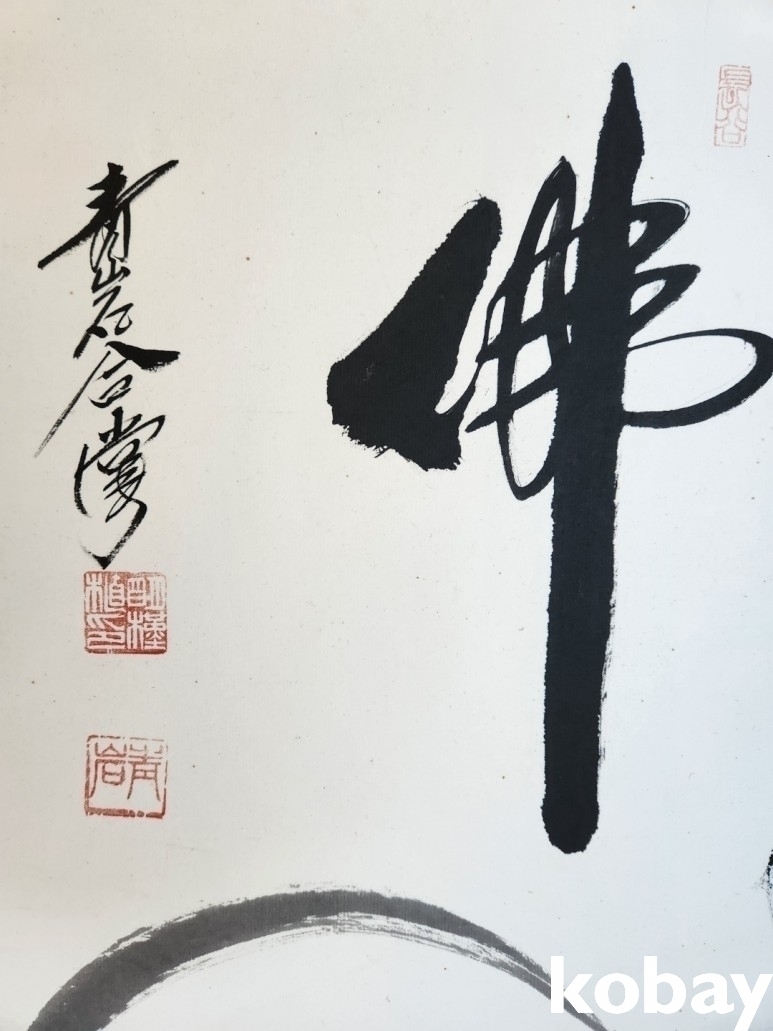 佛
青岩合掌
青岩
kobay